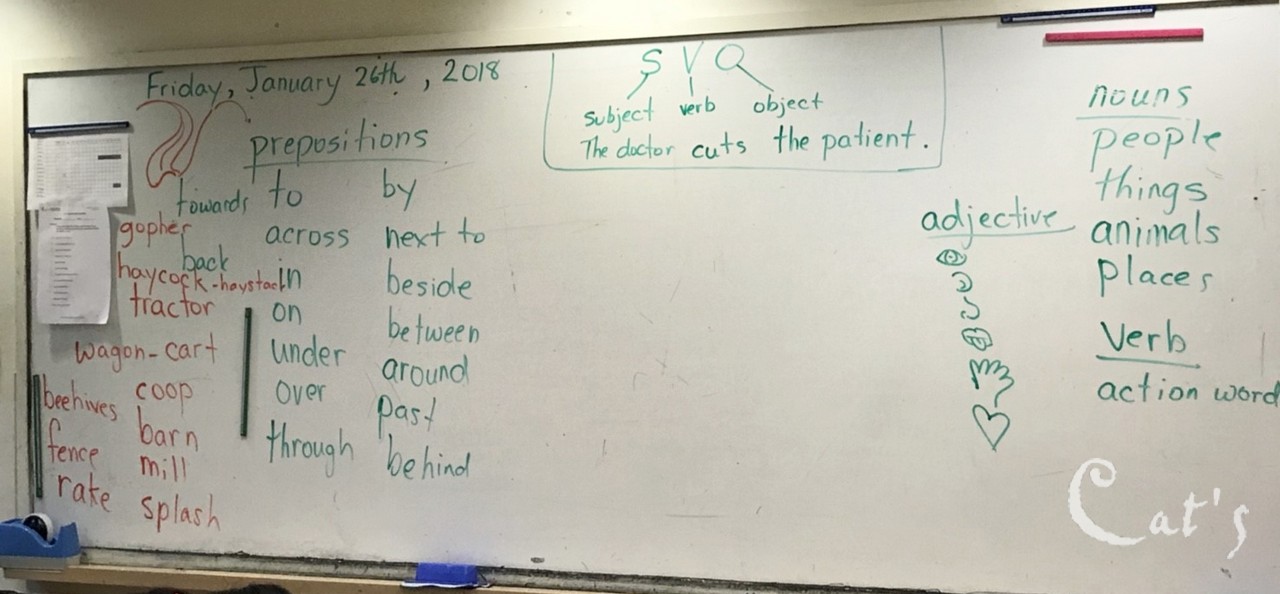 Friday, January 26th, 2018
prepositions
towards to by
across next to
back in beside
on between
under around
over past
through behind
gopher
haycock-haystack
tractor
wagon-cart
beehives coop
fence barn
rake mill
splash
S V O
subject verb object
The doctor cuts the patient.
adjective
nouns
people
things
animals
places
Verb
action word
Cat's